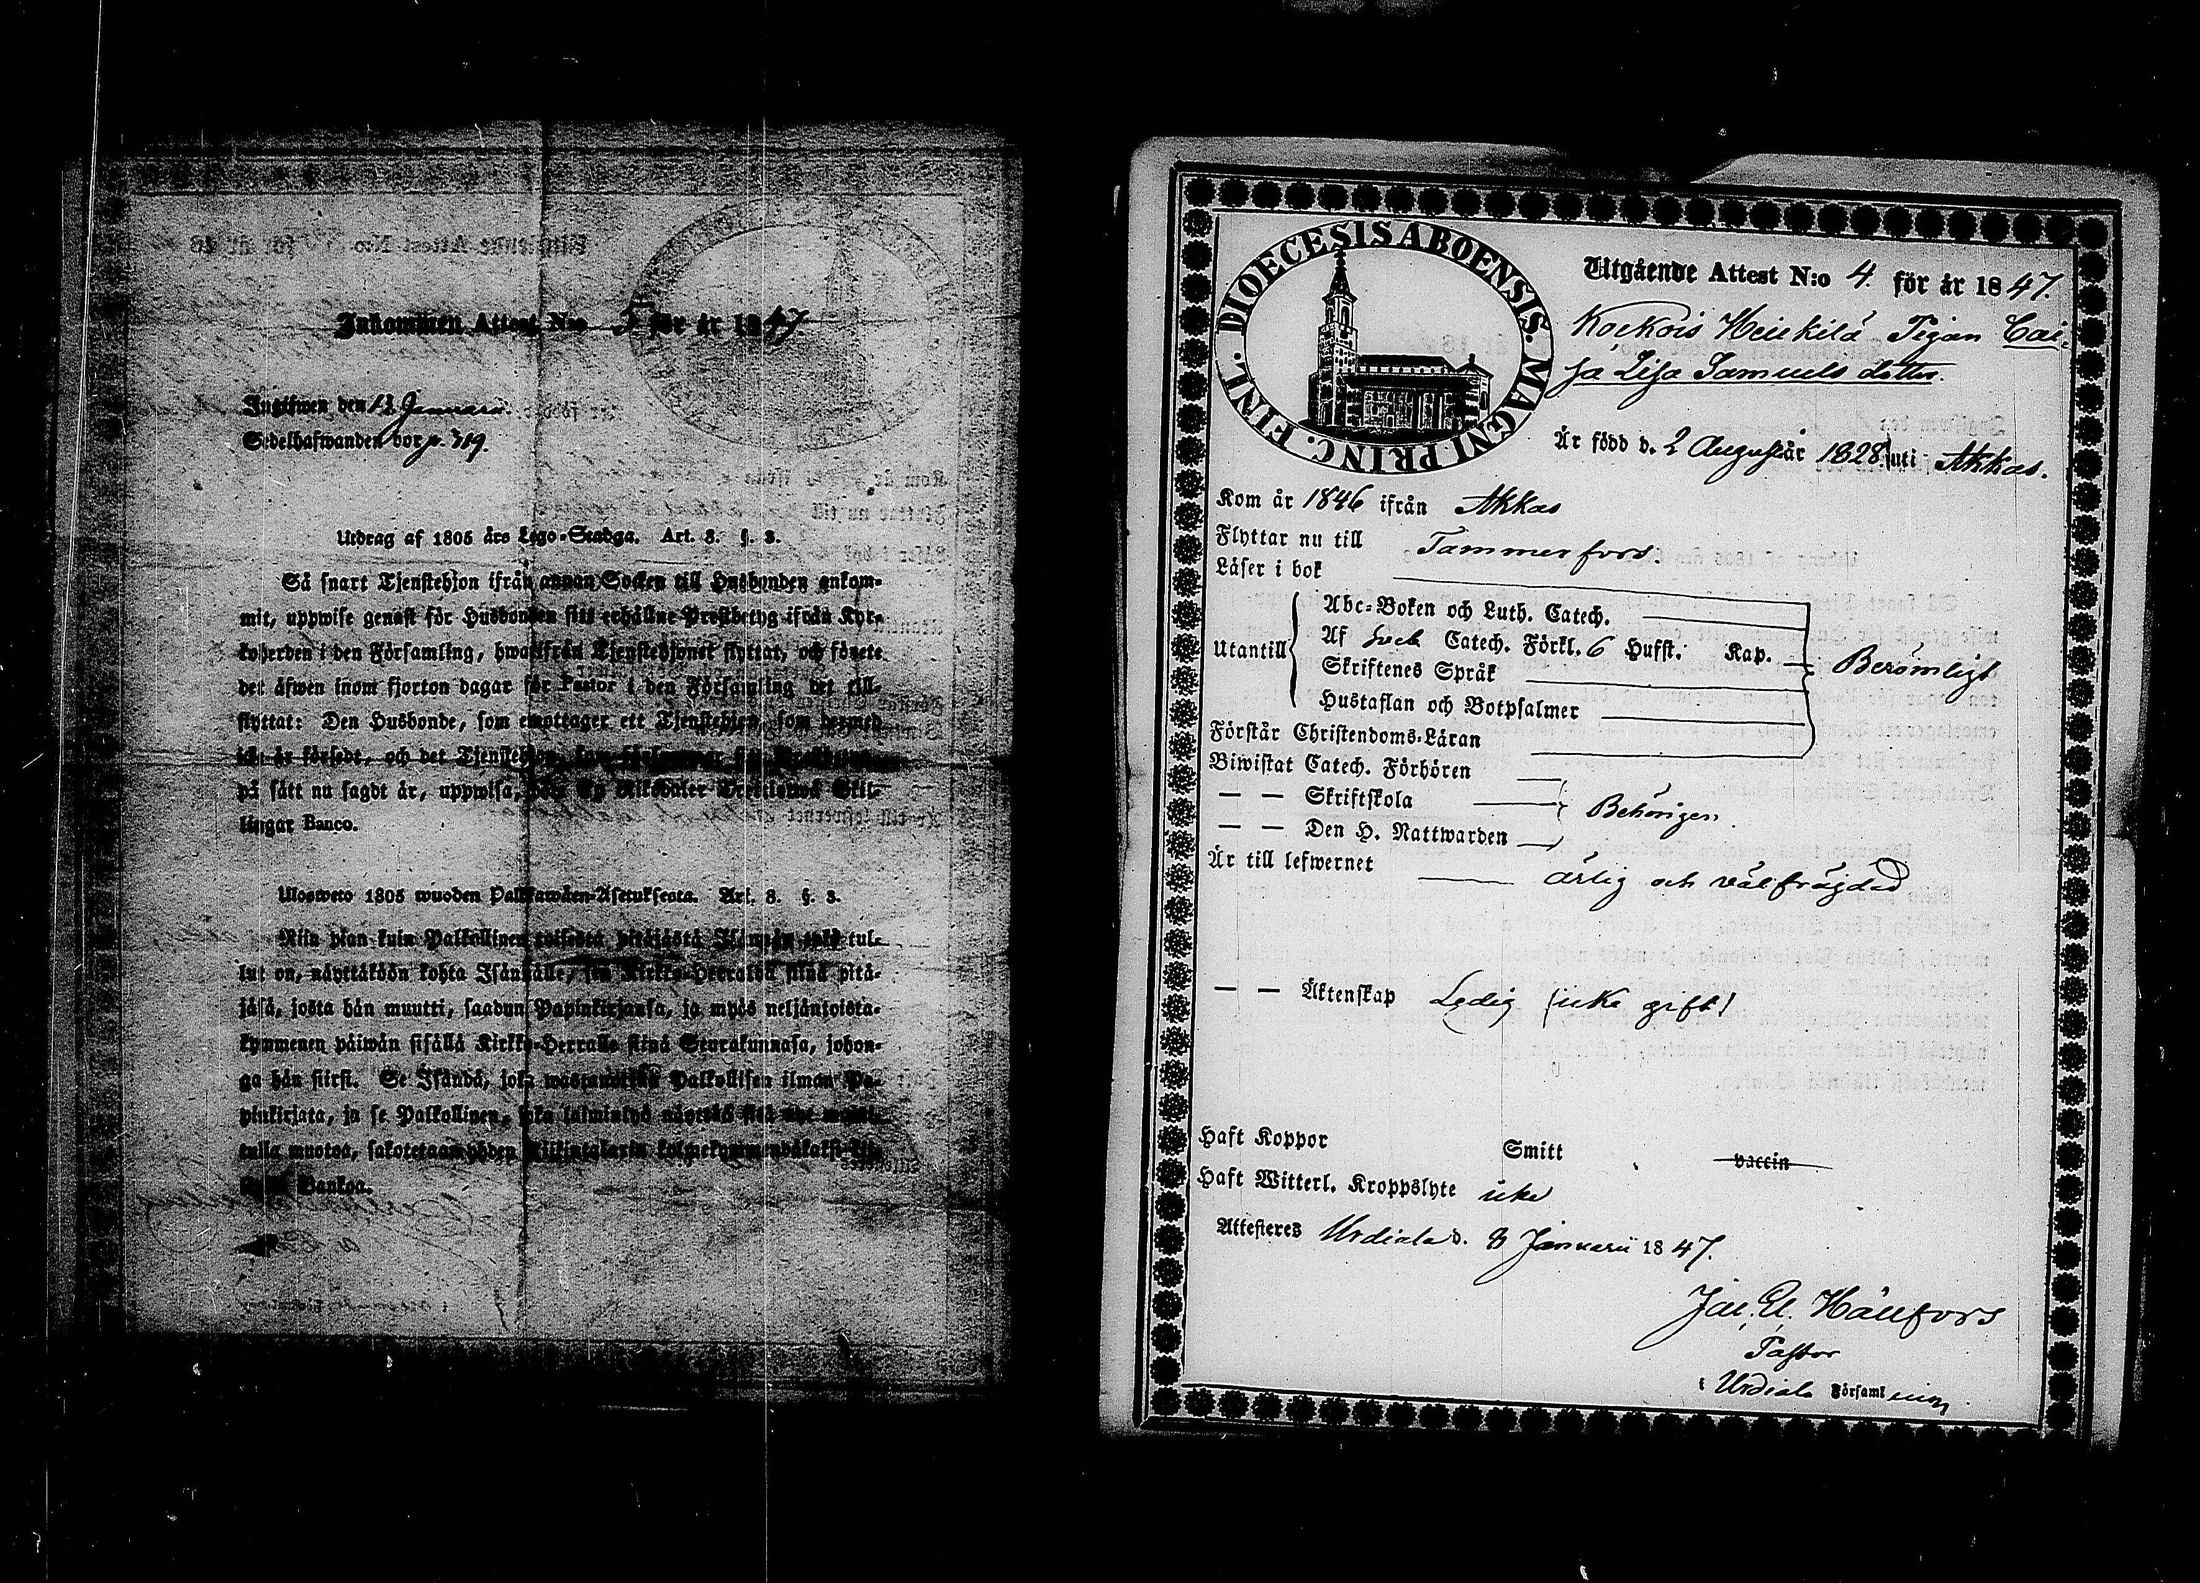 Inkommen Attest N:o 5 för år 1847.
Ingifwen den 13 Januarii
Sedelhafwanden bor p. 319.
Utdrag af 1805 års Lego-Stadga. Art. 3. §. 3.
Så snart Tjenstehjon ifrån annan Socken till Husbonden ankom-
mit, uppwise genast för Husbonden sitt erhållne Prestbetyg ifrån Kyr-
koherden i den Församling, hwarifrån Tjenstehjonet flyttat, och förete
det äfwen inom fjorton dagar för Pastor i den Församling det till-
flyttat: Den Husbonde, som emottager ett Tjenstehjon, som dermed
icke är försedt, och det Tjenstehjon,
på sätt nu sagdt är, uppwisa, böte En Riksdaler Trettiotwå Skil-
lingar Banco.
Ulosweto 1805 wuoden Palkkawäen-Asetuksesta. Art. 3. §. 3.
Niin pian kuin Palkollinen toisesta pitäjästä Isännän tykö tul-
lut on, näyttäköön kohta Isännälle, sen Kirkko-Herralda siinä pitä-
jäsä, josta hän muutti, saadun Papinkirjansa, ja myös neljäntoista-
kymmenen päiwän sisällä Kirkko-Herralle siinä Seurakunnasa, johon-
ga hän siirsi. Se Isändä, joka wastaanottaa Palkollisen ilman Pa-
pinkirjata, ja se Palkollinen, joka laiminlyö näyttää sitä nyt
tulla muotoa, sakotetaan yhden Riikintalarin kolmekymmendäkaksi
Bankoa.
DIOECESIS ABOENSIS. MAGNI PRINC. FINL.
Utgående Attest N:o 4. för år 1847.
Kockois Heickilä Pigan Cai-
sa Lisa Samuels dotter.
Är född d. 2 Augusti år 1828 uti Akkas.
Kom år 1846 ifrån Akkas
Flyttar nu till Tammerfors.
Läser i bok
Utantill
Abc-Boken och Luth. Catech.
Af Sveb Catech. Förkl. 6 Hufst. Kap. Berömligt
Skriftenes Språk
Hustaflan och Botpsalmer
Förstår Christendoms-Läran
Biwistat Catech. Förhören
— — Skriftskola Behörigen
— — Den H. Nattwarden
Är till lefwernet ärlig och välfrägdad
— — Äktenskap Ledig (icke gift)
Haft Koppor Smitt vaccin
Haft Witterl. Kroppslyte icke
Attesteres Urdiala d. 8 Januarii 1847.
Jac. El. Hällfors
Pastor
i Urdiala Församling.